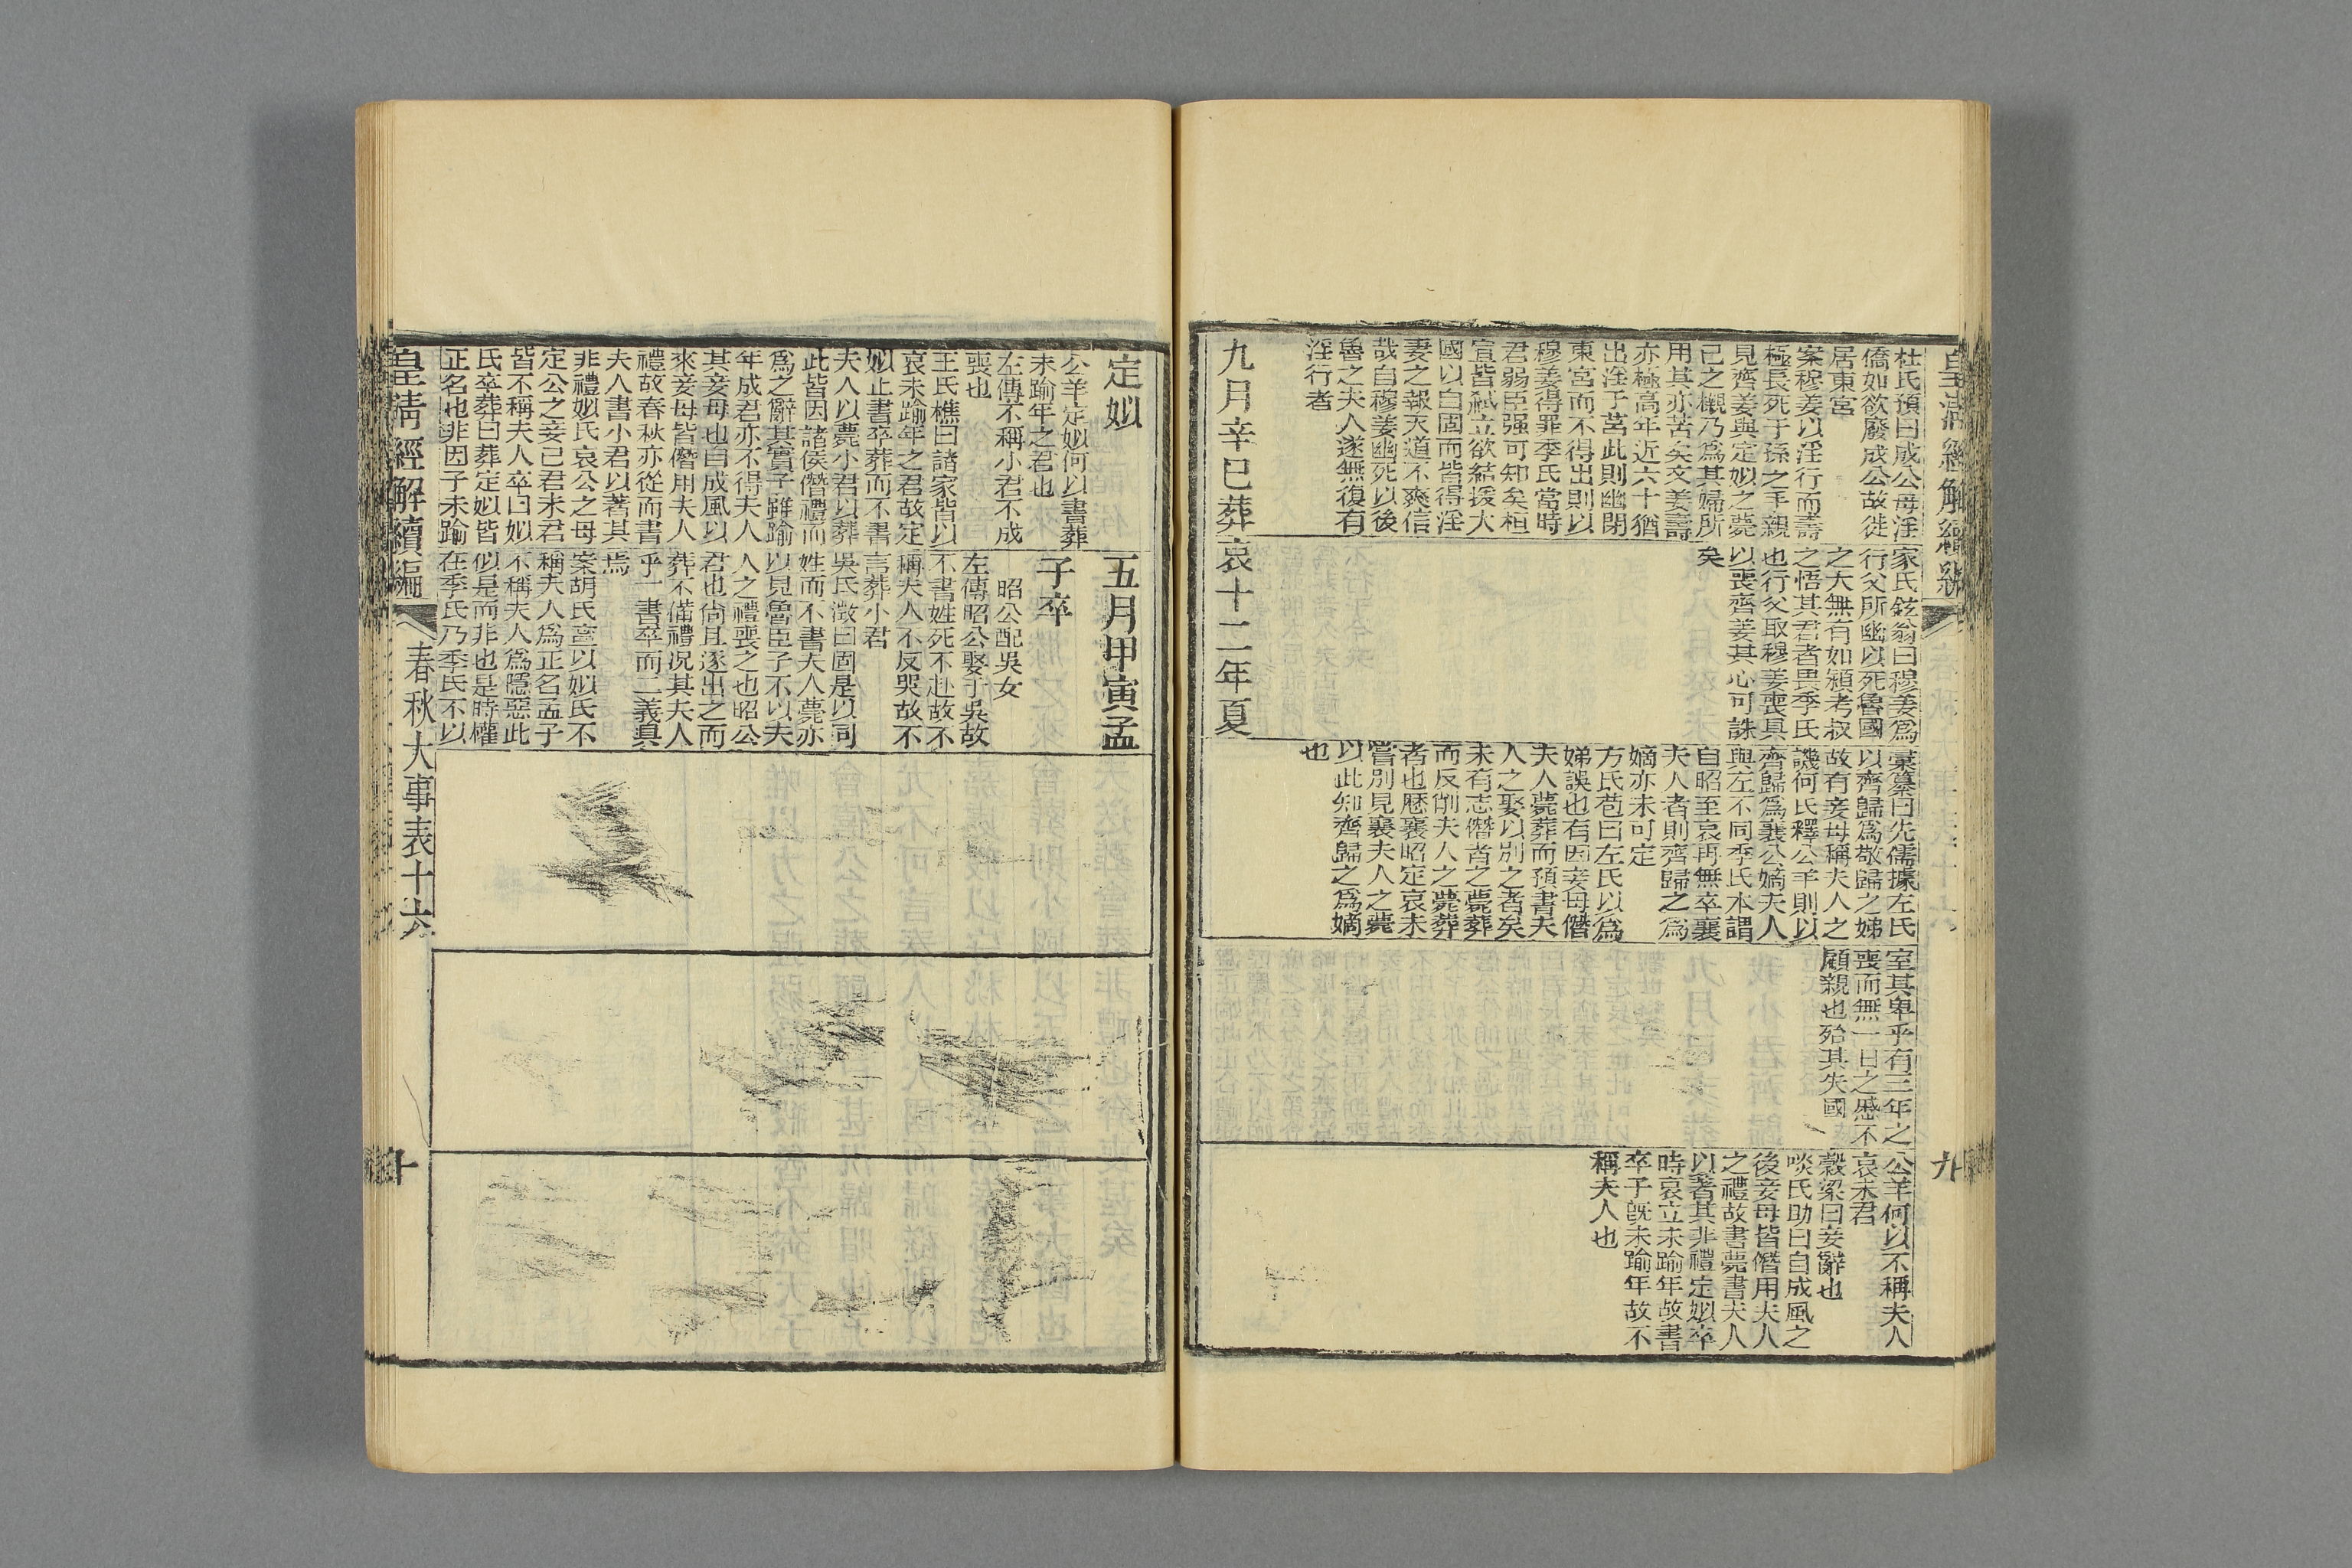 杜氏預曰成公母淫
僑如欲廢成公故徙
居東宮
案穆姜以淫行而壽
極長死于孫之手親
見齊姜與定姒之薨
已之櫬乃爲其婦所
用其亦苦矣文姜壽
亦極高年近六十猶
出淫于莒此則幽閉
東宮而不得出則以
穆姜得罪季氏當時
君弱臣强可知矣桓
宣皆弑立欲結援大
國以自固而皆得淫
妻之報天道不爽信
哉自穆姜幽死以後
魯之夫人遂無復有
淫行者
家氏鉉翁曰穆姜爲
行父所幽以死魯國
之大無有如潁考叔
之悟其君者畏季氏
也行父取穆姜喪具
以喪齊姜其心可誅
矣
彙纂曰先儒據左氏
以齊歸爲敬歸之娣
故有妾母稱夫人之
譏何氏釋公羊則以
齊歸爲襄公嫡夫人
與左不同季氏本謂
自昭至哀再無卒襄
夫人者則齊歸之爲
嫡亦未可定
方氏苞曰左氏以爲
娣誤也有因妾母僭
夫人薨葬而預書夫
人之娶以別之者矣
未有志僭者之薨葬
而反削夫人之薨葬
者也歷襄昭定哀未
嘗別見襄夫人之薨
以此知齊歸之爲嫡
也
室其卑乎有三年之
喪而無一日之慼不
顧親也殆其失國
公羊何以不稱夫人
哀未君
穀梁曰妾辭也
啖氏助曰自成風之
後妾母皆僭用夫人
之禮故書薨書夫人
以著其非禮定姒卒
時哀立未踰年故書
卒子旣未踰年故不
稱夫人也
九月辛巳葬
哀十二年夏
皇清經解續編
九
定姒
公羊定姒何以書葬
未踰年之君也
左傳不稱小君不成
喪也
王氏樵曰諸家皆以
哀未踰年之君故定
姒止書卒葬而不書
夫人以薨小君以葬
此皆因諸侯僭禮而
爲之辭其實子雖踰
年成君亦不得夫人
其妾母也自成風以
來妾母皆僭用夫人
禮故春秋亦從而書
夫人書小君以著其
非禮姒氏哀公之母
定公之妾已君未君
皆不稱夫人卒曰姒
氏卒葬曰葬定姒皆
正名也非因子未踰
五月甲寅孟
子卒
昭公配吳女
左傳昭公娶于吳故
不書姓死不赴故不
稱夫人不反哭故不
言葬小君
吳氏澂曰固是以同
姓而不書夫人薨亦
以見魯臣子不以夫
人之禮喪之也昭公
君也尙且逐出之而
葬不備禮況其夫人
乎一書卒而二義具
焉
案胡氏甯以姒氏不
稱夫人爲正名孟子
不稱夫人爲隱惡此
似是而非也是時權
在季氏乃季氏不以
皇清經解續編
春秋大事表十六
十